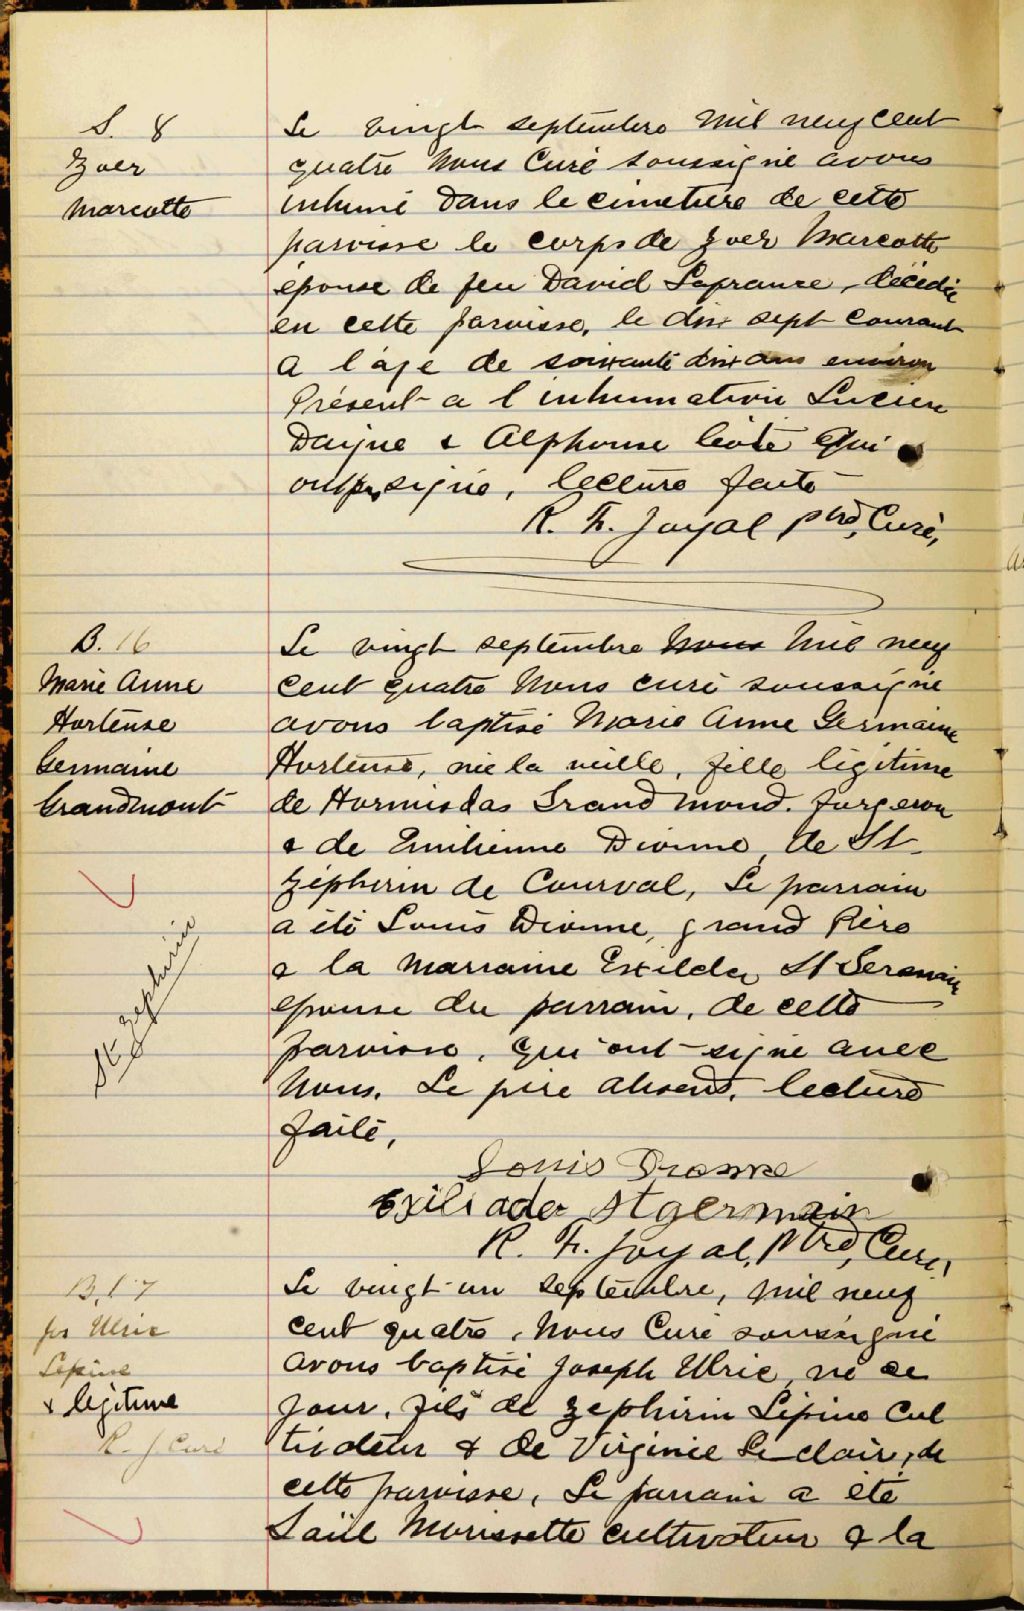 S. 8
Zoer
Marcotte
Le vingt septembre mil neuf cent
quatre Nous Curé soussigné avons
inhumé dans le cimetière de cette
paroisse le corps de Zoer Marcotte
épouse de feu David Lafrance, décédée
en cette paroisse, le dix sept courant
a l'age de soixante dix ans environ
Présent a l inhumation Lucien
& Alphonse qui
ont pas signé, lecture faite
R. F. Joyal ptre, Curé,
B. 16
Marie Anne
Hortense
Germaine
Grandmont
St Zephirin
Le vingt septembre nous mil neuf
cent quatre Nous curé soussigné
avons baptisé Marie Anne Germaine
Hortense, née la veille, fille légitime
de Hormisdas Grandmond. forgeron
& de Emilienne Dionne, de St
Zéphirin de Courval, Le parrain
a été Louis Dionne, grand Père
& la marraine Exilda St Germain
epouse du parrain, de cette
paroisse, qui ont signé avec
Nous. Le père absent, lecture
faite,
Louis Dionne
Exiliada St germain
R. F. Joyal, Ptre, Curé,
B. 17
Jos Ulric
Lepine
& légitime
R. J. Curé
Le vingt un septembre, mil neuf
cent quatre, Nous Curé soussigné
avons baptisé Joseph Ulric, né ce
jour, fils de Zephirin Lépine Cul
tivateur & de Virginie Leclair, de
cette paroisse, Le parrain a été
Saül Morissette cultivateur & la